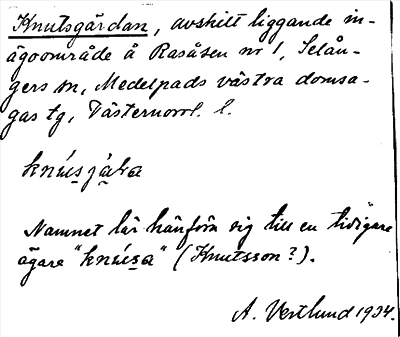 Knutsgårdan, avskilt liggande in-
ägoområde å Rasåsen nr 1, Selån-
gers sn, Medelpads västra domsa-
gas tg, Västernorrl. l.
knúsgáḷa
Namnet lär hänföra sig till en tidigare
ägare "knúsa" (Knutsson?).
A. Vestlund 1934.